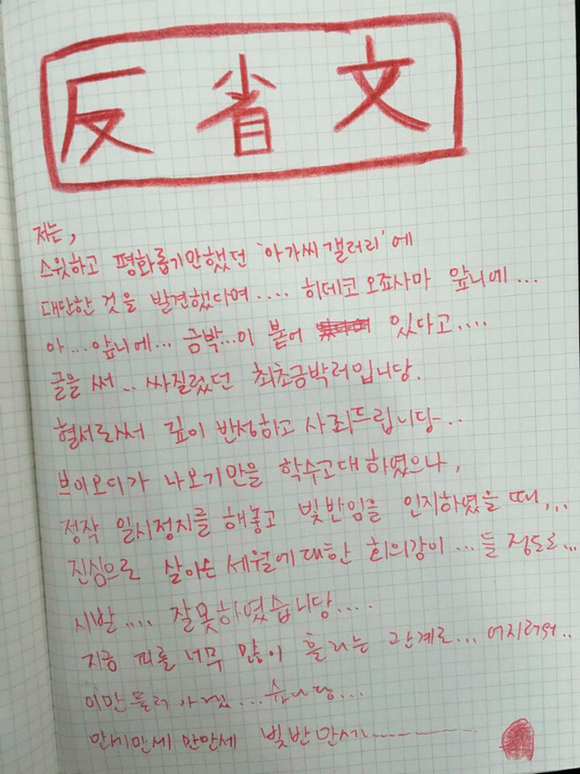 反省文
저는,
스윗하고 평화롭기만했던 '아가씨 갤러리'에
대단한 것을 발견했다며.... 히데코 오죠사마 앞니에...
아...앞니에... 금박...이 붙어 있다고....
글을 써.. 싸질렀던 최초금박러입니당.
혈서로써 깊이 반성하고 사죄드립니당..
브이오디가 나오기만을 학수고대하였으나,
정작 일시정지를 해놓고 빛반임을 인지하였을 때,..
진심으로 살아온 세월에 대한 회의감이 ...들 정도로...
시발.... 잘못하였습니당....
지금 피를 너무 많이 흘리는 관계로... 어지러워..
이만 물러가겠...습니당...
만세만세 만만세 빛반만세